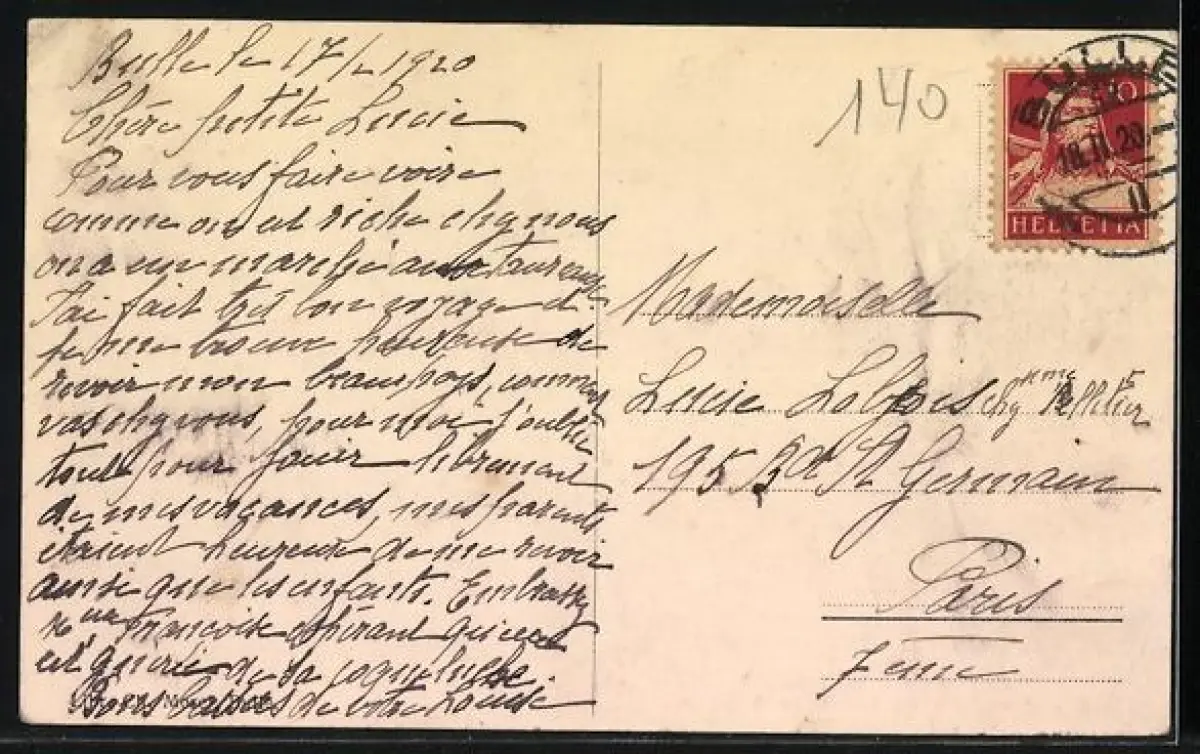 Bulle le 17/2 1920
Chère petite Lucie
Pour vous faire voire
comme on est riche chez nous
on a un marché aux Taureaux
J'ai fait très bon voyage et
je me trouve heureuse de
revoir mon beau pays, comme
vas chez vous, pour moi j'oublie
tout pour jouir librement
de mes vacances, mes parents
étaient heureux de me revoir
ainsi que les enfants. Embrassez
Françoise espérant qu'elle
est guérie de sa coqueluche
Bons baisers de votre Louise
140
BULLE
18.II.20
10
HELVETIA
Mademoiselle
Lucie chez Mme
195 Bd St Germain
Paris
7eme